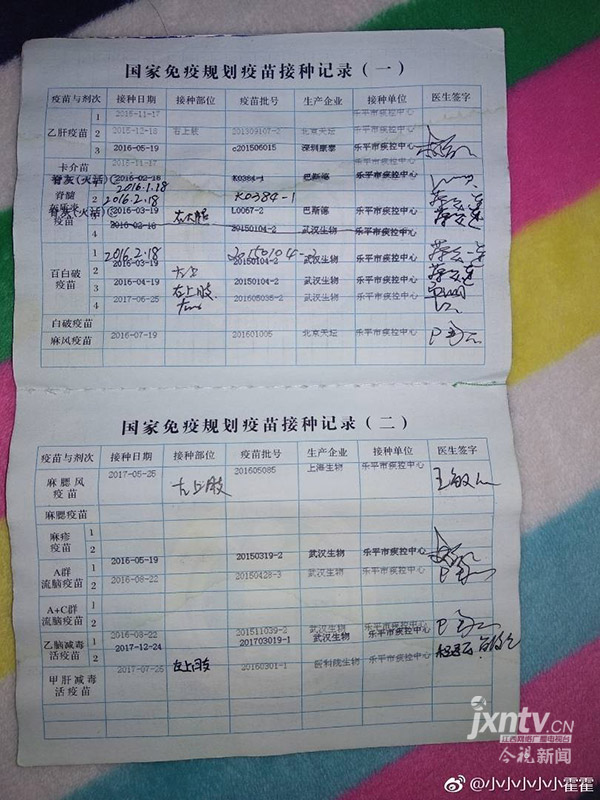 国家免疫规划疫苗接种记录(一)
疫苗与剂次 接种日期 接种部位 疫苗批号 生产企业 接种单位 医生签字
乙肝疫苗
1 2015-11-17 乐平市疾控中心
2 2015-12-18 右上肢 201309107-2 北京天坛 乐平市疾控中心
3 2016-05-19 c201506015 深圳康泰 乐平市疾控中心
卡介苗 2015-11-17 乐平市疾控中心
脊灰(火活) 2016-02-18 K0384-1 巴斯德 乐平市疾控中心
脊髓灰质炎疫苗
2016.1.18
2 2016.2.18 K0384-1
脊灰(火活) 2016-03-19 L0067-2 巴斯德 乐平市疾控中心
4 2016-02-18 20150104-2 武汉生物 乐平市疾控中心
百白破疫苗
1 2016.2.18 20150104-2
2 2016-03-19 左上 20150104-2 武汉生物 乐平市疾控中心
3 2016-04-19 右上肢 20150104-2 武汉生物 乐平市疾控中心
4 2017-05-25 201605035-2 武汉生物 乐平市疾控中心
白破疫苗
麻风疫苗 2016-07-19 201601005 北京天坛 乐平市疾控中心
国家免疫规划疫苗接种记录(二)
疫苗与剂次 接种日期 接种部位 疫苗批号 生产企业 接种单位 医生签字
麻腮风疫苗 2017-05-25 左上肢 201605085 上海生物 乐平市疾控中心
麻腮疫苗
麻疹疫苗
1
2
A群流脑疫苗
1 2016-05-19 20150319-2 武汉生物 乐平市疾控中心
2 2016-08-22 20150428-3 武汉生物 乐平市疾控中心
A+C群流脑疫苗
1
2
乙脑减毒活疫苗
1 2016-08-22 201511039-2 武汉生物 乐平市疾控中心
2 2017-12-24 201703019-1 武汉生物 乐平市疾控中心
甲肝减毒活疫苗 2017-07-25 左上肢 20160301-1 医科院生物 乐平市疾控中心
jxntv.CN
江西网络广播电视台
今视新闻
@小小小小小霍霍